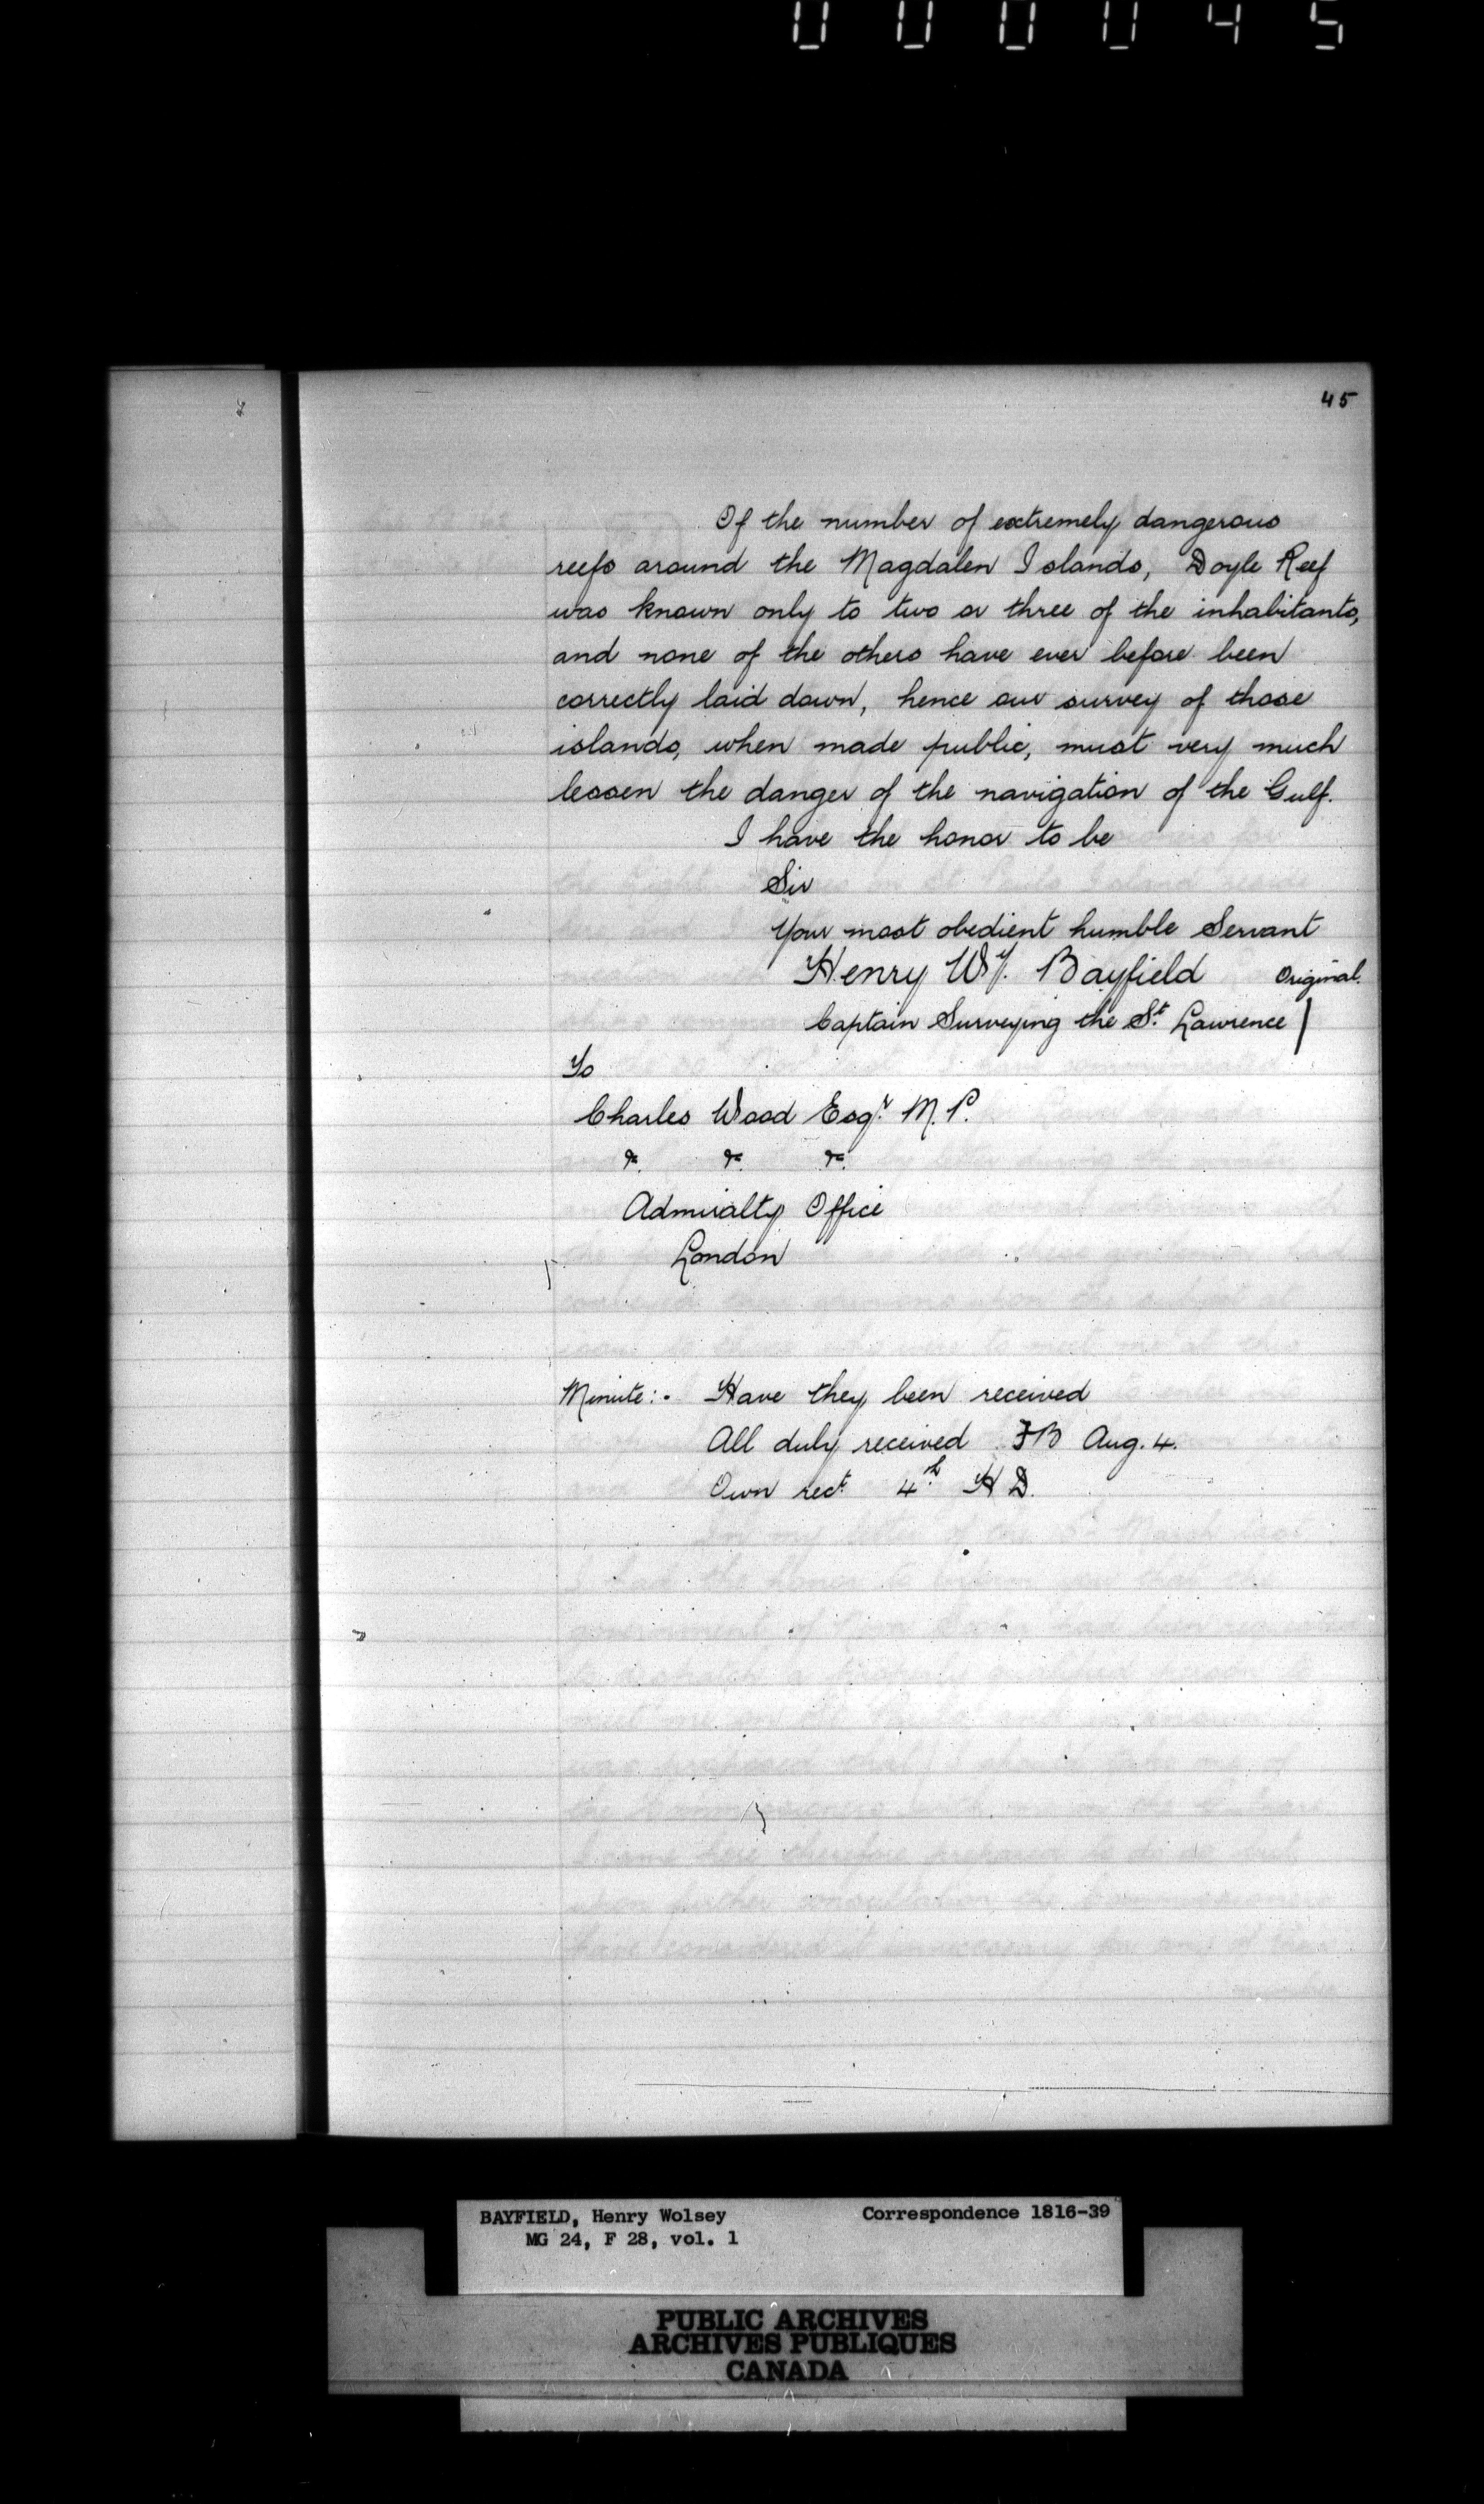 000045
45
Of the number of extremely dangerous
reefs around the Magdalen Islands, Doyle Reef
was known only to two or three of the inhabitants,
and none of the others have ever before been
correctly laid down, hence our survey of those
islands, when made public, must very much
lessen the danger of the navigation of the Gulf.
I have the honor to be
Sir
Your most obedient humble Servant
Henry Wy. Bayfield Original.
Captain Surveying the St. Lawrence
To
Charles Wood Esqr. M.P.
&. &. &.
Admiralty Office
London
Minute:- Have they been received
All duly received FB Aug. 4.
Own rect. 4th. HD.
BAYFIELD, Henry Wolsey Correspondence 1816-39
MG 24, F 28, vol. 1
PUBLIC ARCHIVES
ARCHIVES PUBLIQUES
CANADA